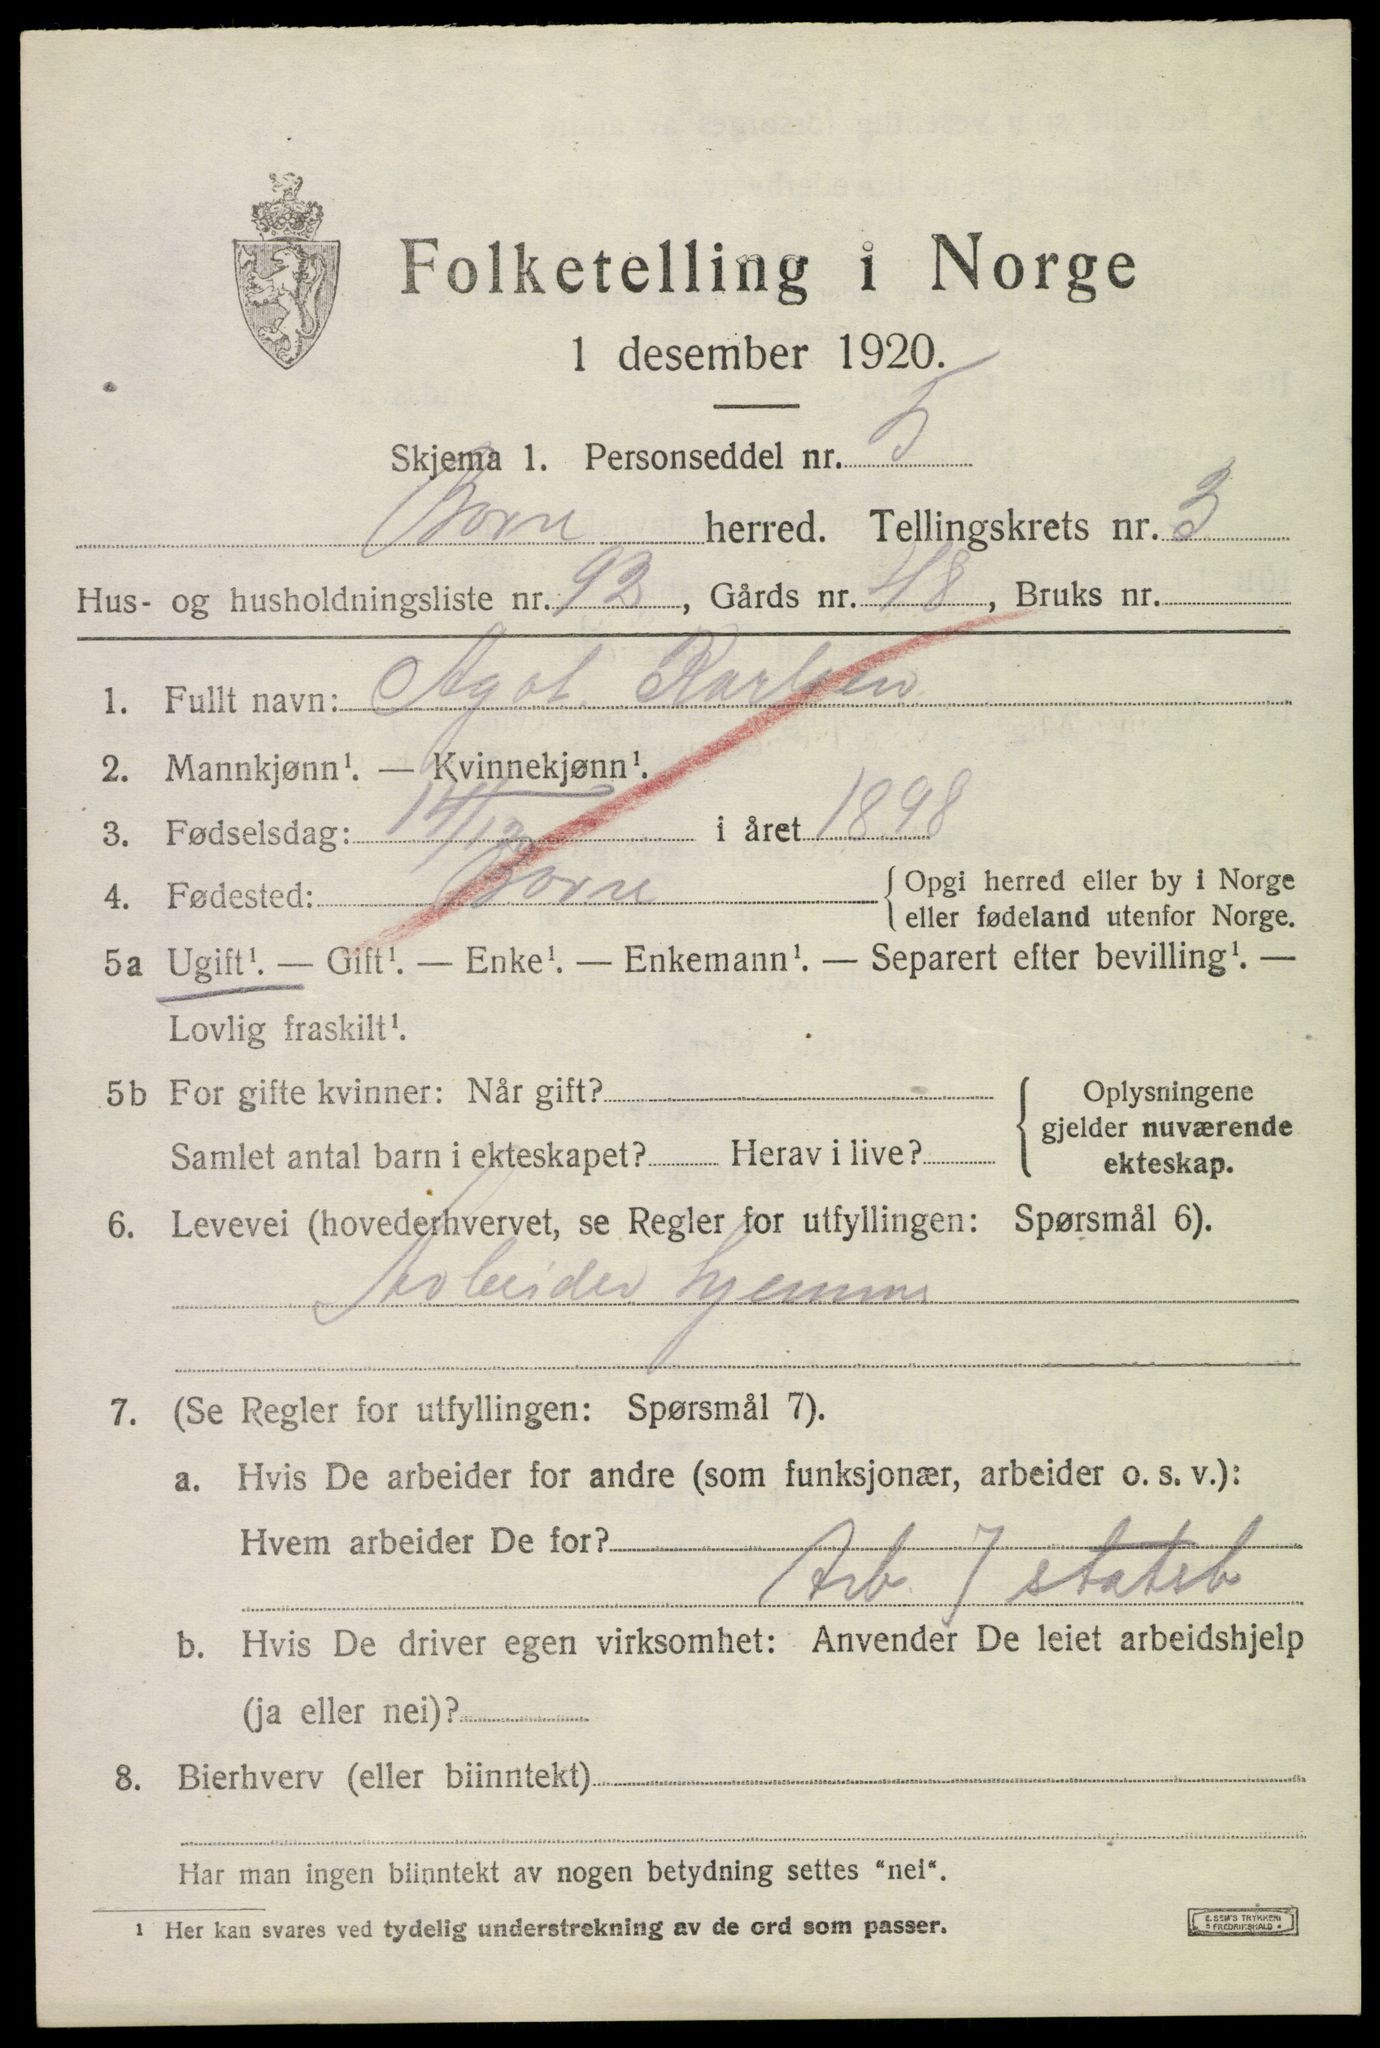 Folketelling i Norge
1 desember 1920.
Skjema 1. Personseddel nr. 5
Borre herred. Tellingskrets nr. 3
Hus- og husholdningsliste nr. 92, Gårds nr. 48, Bruks nr.
1. Fullt navn: Agot Karlsen
2. Mannkjønn¹. — Kvinnekjønn¹.
3. Fødselsdag: 14/12 i året 1898
4. Fødested: Borre { Opgi herred eller by i Norge
eller fødeland utenfor Norge.
5a Ugift¹. — Gift¹. — Enke¹. — Enkemann¹. — Separert efter bevilling¹. —
Lovlig fraskilt¹.
5b For gifte kvinner: Når gift? { Oplysningene
gjelder nuværende
Samlet antal barn i ekteskapet? Herav i live? ekteskap.
6. Levevei (hovederhvervet, se Regler for utfyllingen: Spørsmål 6).
Arbeider hjemme
7. (Se Regler for utfyllingen: Spørsmål 7).
a. Hvis De arbeider for andre (som funksjonær, arbeider o. s. v.):
Hvem arbeider De for?
Arb. 7 statsb
b. Hvis De driver egen virksomhet: Anvender De leiet arbeidshjelp
(ja eller nei)?
8. Bierhverv (eller biinntekt)
Har man ingen biinntekt av nogen betydning settes "nei".
¹ Her kan svares ved tydelig understrekning av de ord som passer.
E. SEM'S TRYKKERI
FREDRIKSHALD